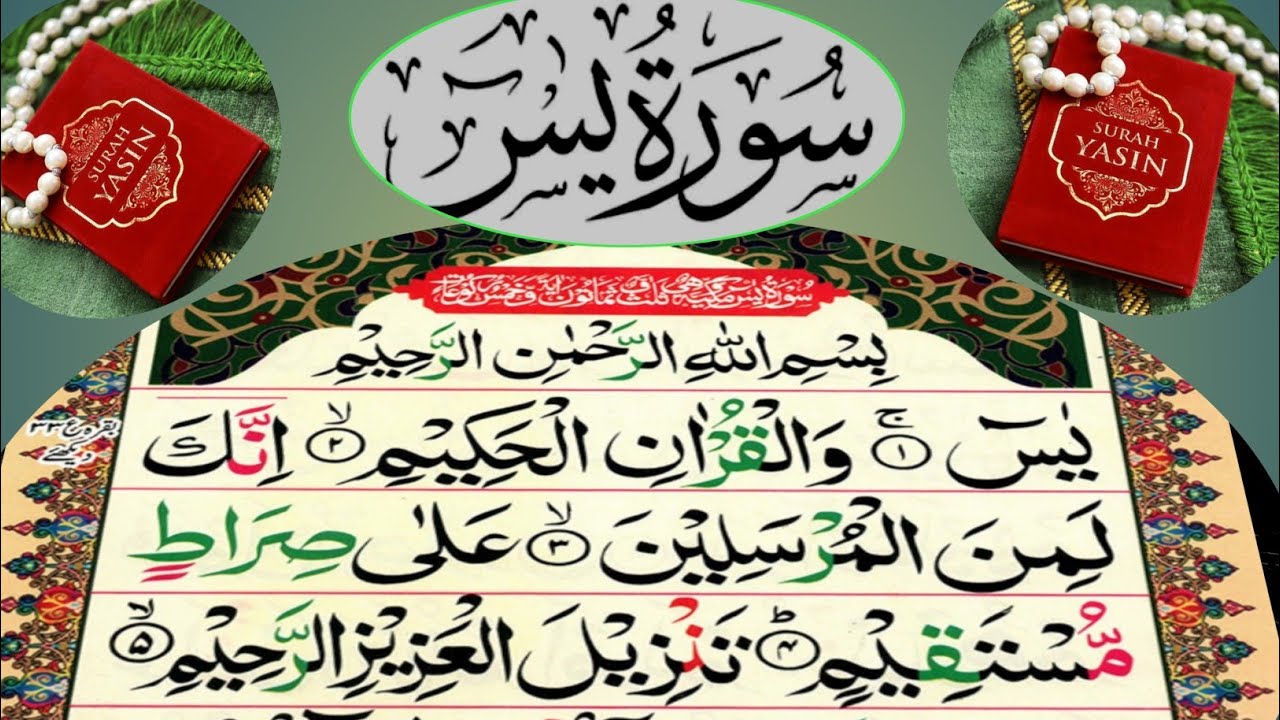 سُورَةُ يٰسٓ
SURAH
YASIN
SURAH
YASIN
بِسْمِ اللهِ الرَّحْمٰنِ الرَّحِيْمِ
يٰسٓ ۚ ﴿۱﴾ وَالْقُرْاٰنِ الْحَكِيْمِ ۙ ﴿۲﴾ اِنَّكَ
لَمِنَ الْمُرْسَلِيْنَ ۙ ﴿۳﴾ عَلٰى صِرَاطٍ
مُّسْتَقِيْمٍ ؕ ﴿۴﴾ تَنْزِيْلَ الْعَزِيْزِ الرَّحِيْمِ ۙ ﴿۵﴾